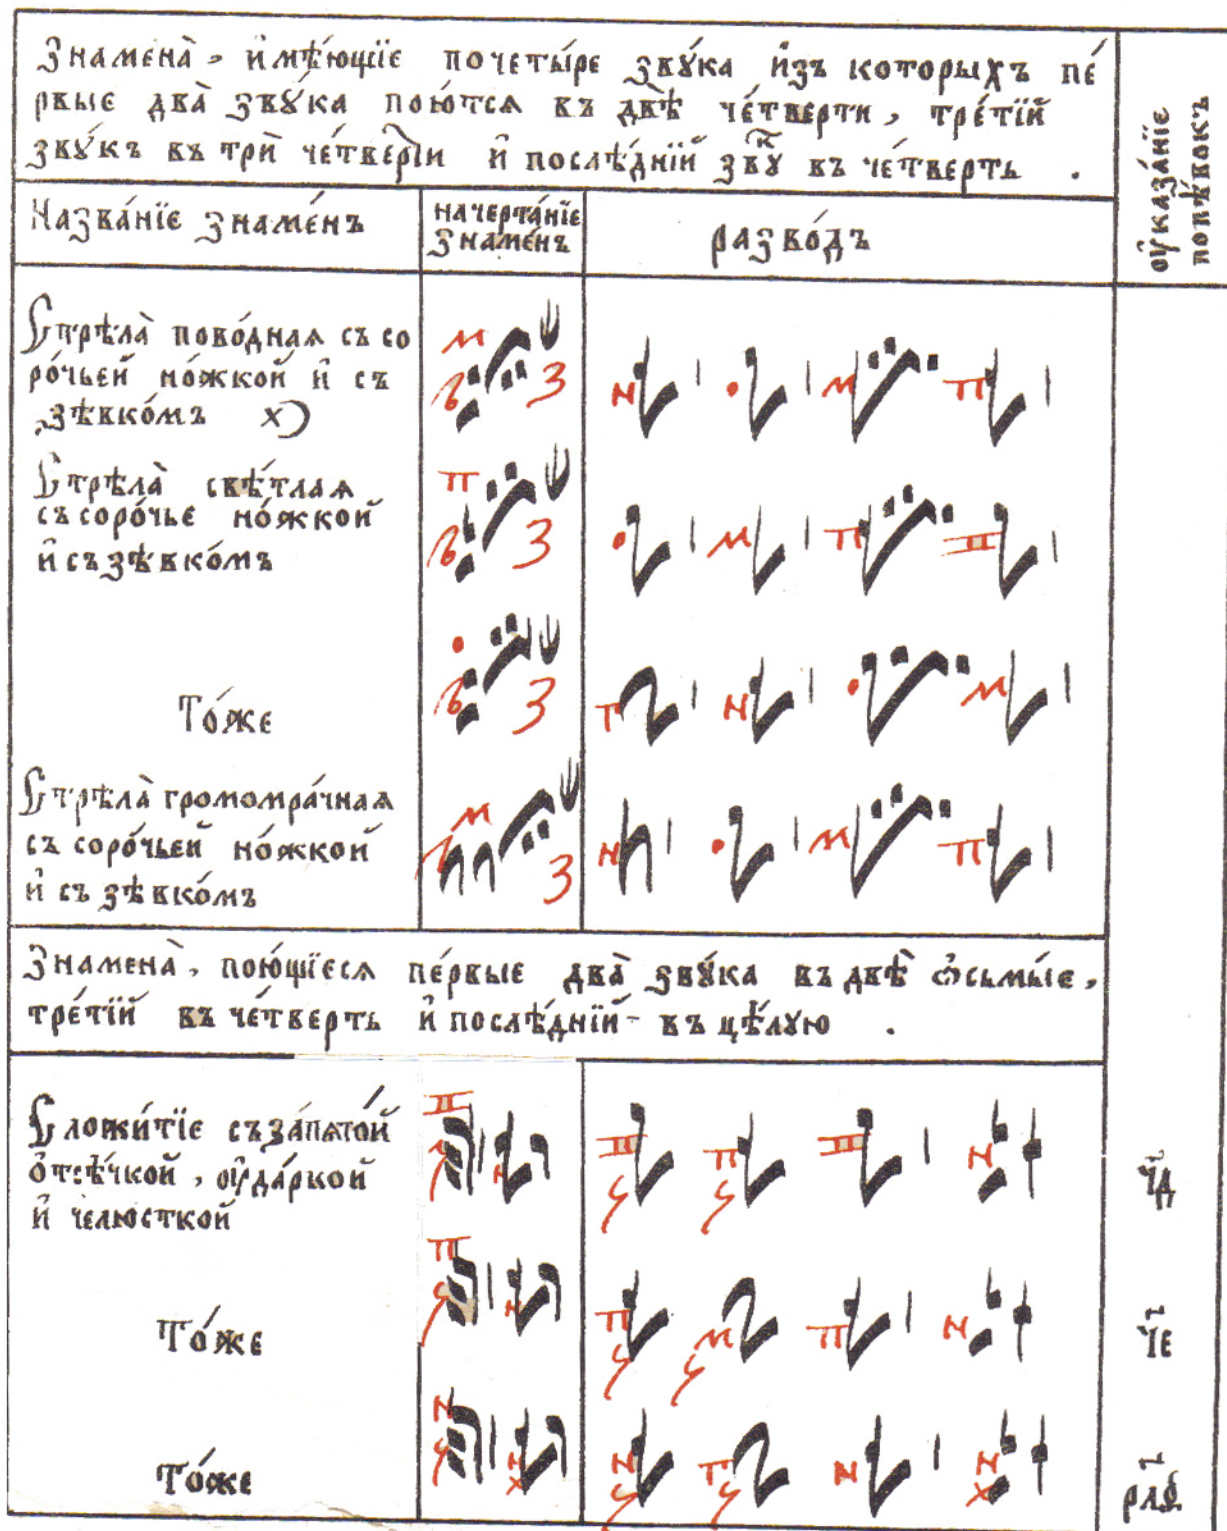 Знамена̀, и҆мѣ́ющїе почеты́ре зву́ка и҆зъ которыхъ пе́
рвые два̀ зву́ка пою́тся въ двѣ̀ че́тверти, тре́тїй
зву́къ въ трѝ че́тверти и҆ послѣ́днїй зву́къ въ че́тверть .
оу҆каза́нїе
попѣ́вокъ
Назва́нїе знаме́нъ
начерта́нїе
знаме́нъ
разво́дъ
Стрѣла̀ пово́дная съ со
ро́чьей но́жкой и҆ съ
зѣвко́мъ
Стрѣла̀ свѣ́тлая
съ соро́чье но́жкой
и҆ съ зѣвко́мъ
То́же
Стрѣла̀ громомра́чная
съ соро́чьей но́жкой
и҆ съ зѣвко́мъ
Знамена̀, пою́щїеся пе́рвые два̀ зву́ка въ двѣ̀ ѻ҆сьмы́е,
тре́тїй въ че́тверть и҆ послѣ́днїй въ цѣ́лую .
Сложи́тїе съ запято́й
ѻ҆тсѣ́чкой, оу҆да́ркой
и҆ челюсткой
чд
То́же
че
То́же